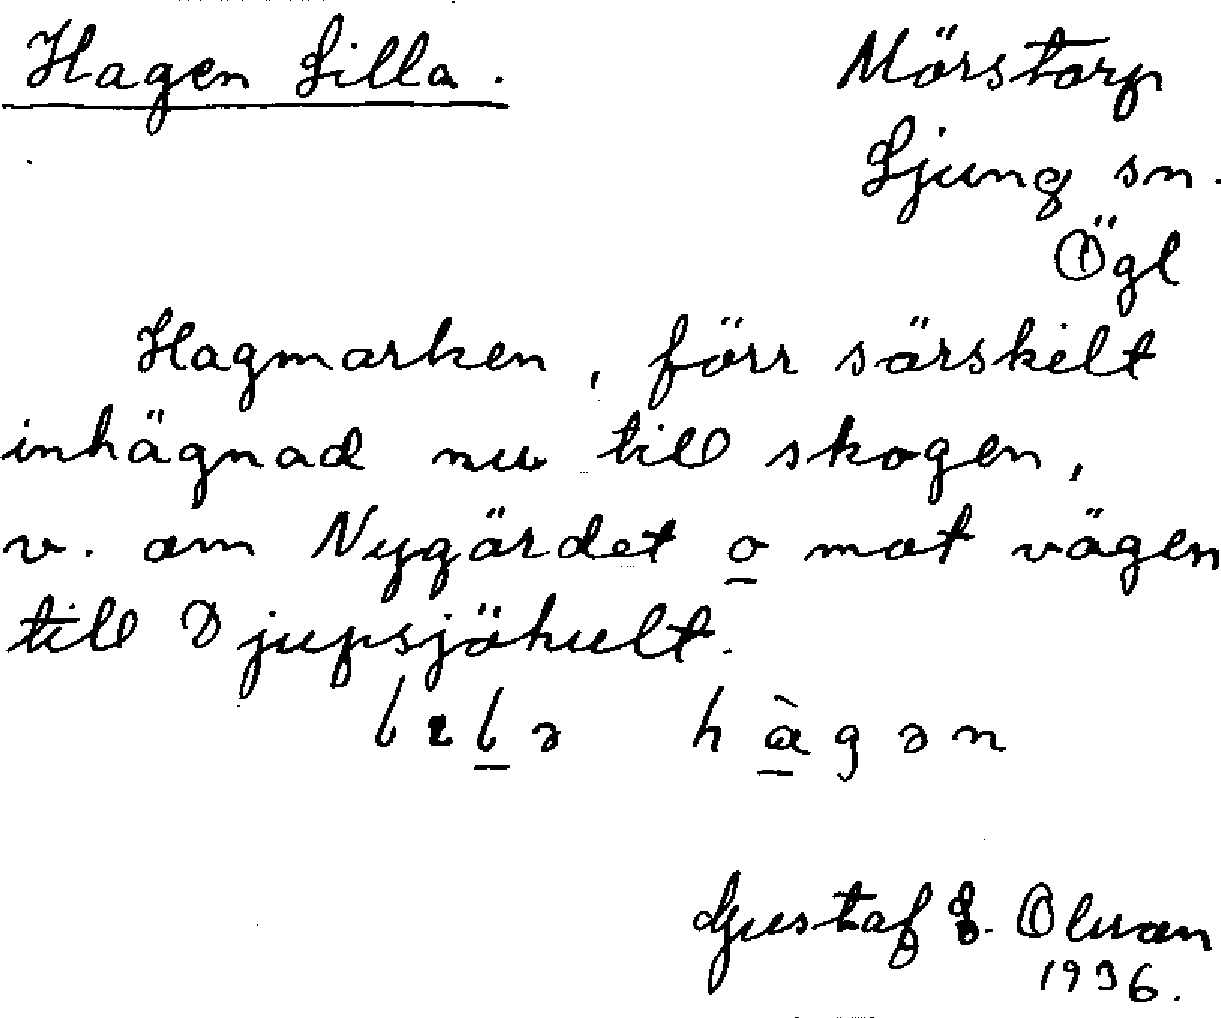 Hagen Lilla.
Mörstorp
Ljung sn.
Ögl
Hagmarken, förr särskilt
inhägnad nu till skogen,
v. om Nygärdet o mot vägen
till Djupsjöhult.
hàgən
Gustaf E.
1936.